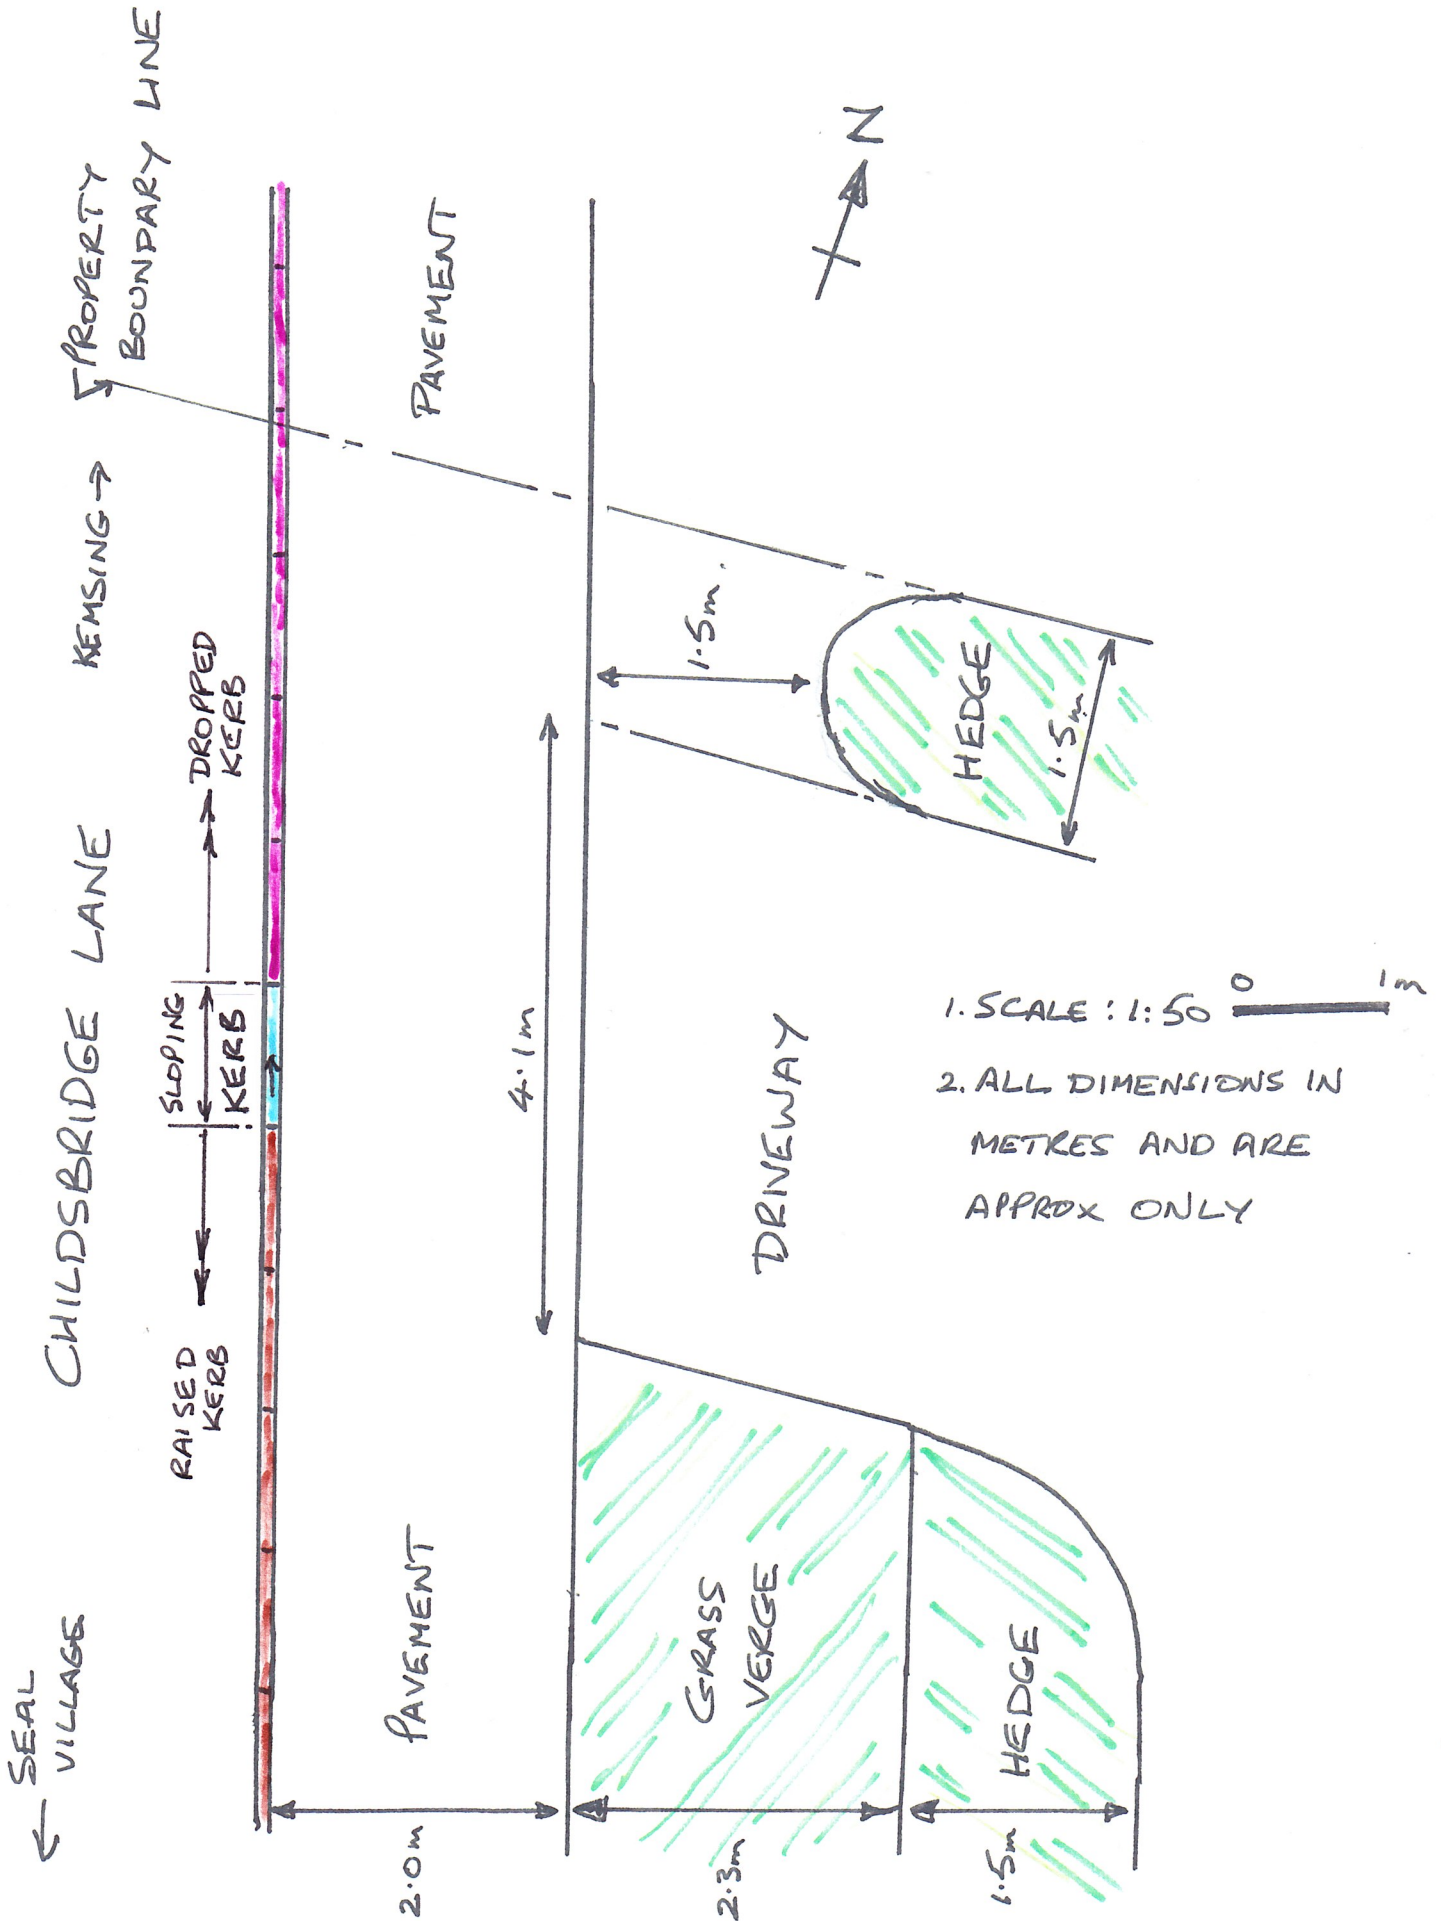 ← SEAL
VILLAGE
CHILDSBRIDGE LANE
KEMSING →
PROPERTY
BOUNDARY LINE
RAISED
KERB
SLOPING
KERB
DROPPED
KERB
PAVEMENT
PAVEMENT
2.0m
4.1m
1.5m.
N
GRASS
VERGE
2.3m
DRIVEWAY
HEDGE
1.5m
HEDGE
1.5m
1. SCALE : 1:50
0 1m
2. ALL DIMENSIONS IN
METRES AND ARE
APPROX ONLY